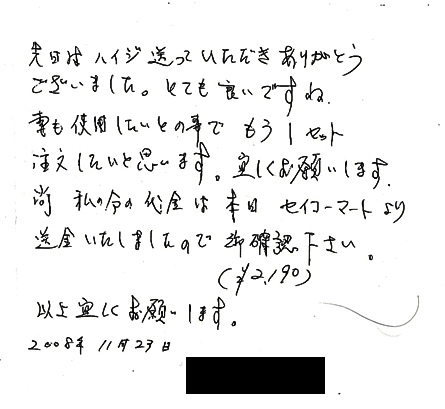 先日は ハイジ 送って いただき ありがとう
ございました。とても 良いですね.
妻も 使用したいとの事で もう1セット
注文したいと思います。宜しくお願いします.
尚 私の分の代金は 本日 セイコーマートより
送金いたしましたので 御確認下さい。
(¥2,190)
以上宜しくお願いします。
2008年 11月23日